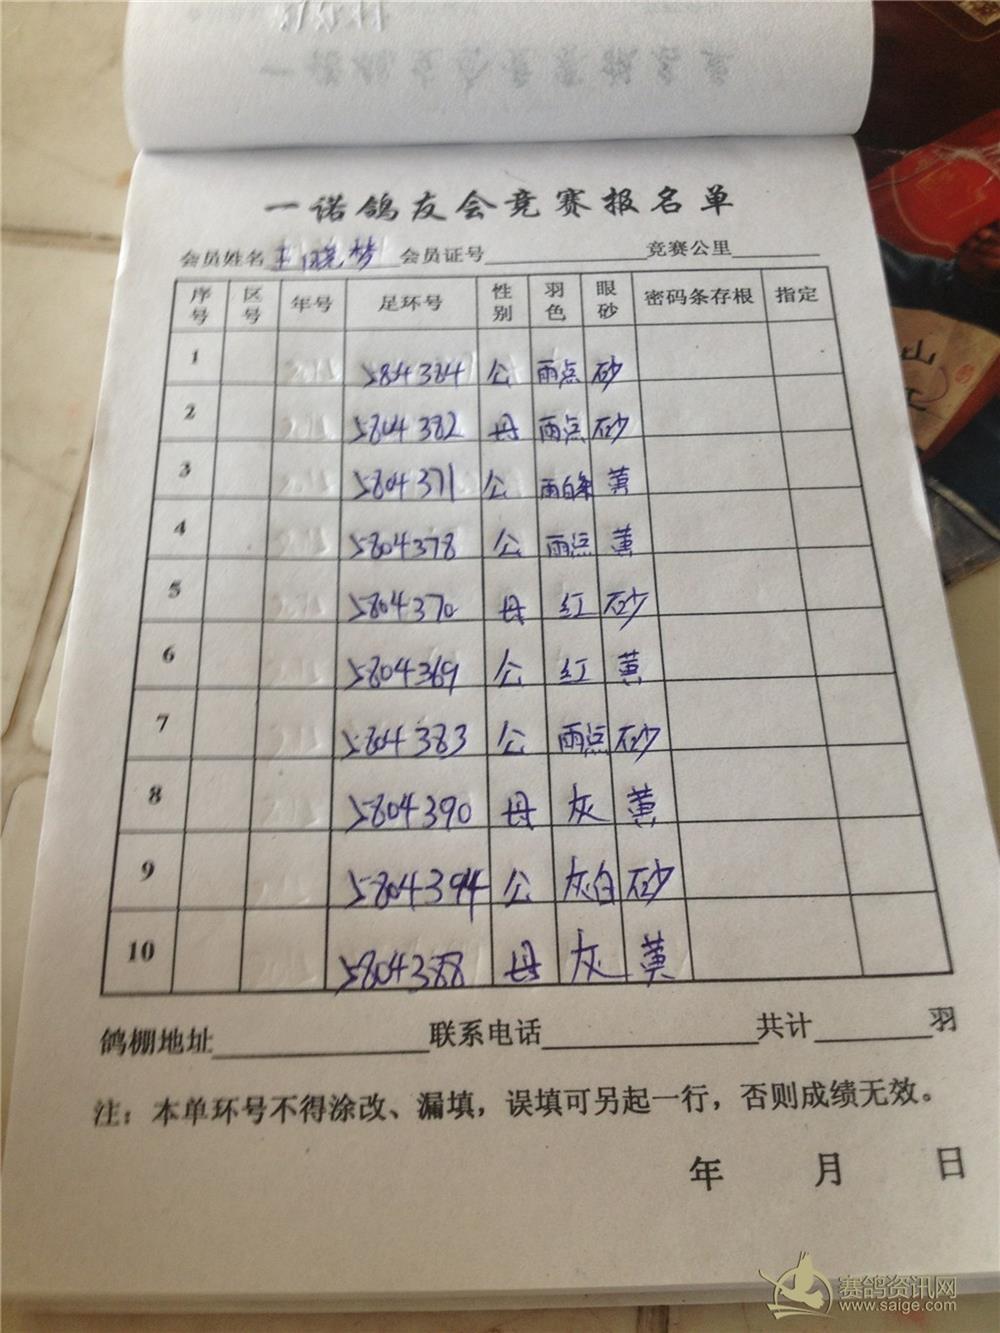 一诺鸽友会竞赛报名单
会员姓名 王晓梦 会员证号 竞赛公里
序号 区号 年号 足环号 性别 羽色 眼砂 密码条存根 指定
1 5804384 公 雨点 砂
2 5804382 母 雨点 砂
3 5804371 公 雨白条 黄
4 5804378 公 雨点 黄
5 5804370 母 红 砂
6 5804369 公 红 黄
7 5804383 公 雨点 砂
8 5804390 母 灰 黄
9 5804394 公 灰白 砂
10 5804388 母 灰 黄
鸽棚地址 联系电话 共计 羽
注：本单环号不得涂改、漏填，误填可另起一行，否则成绩无效。
年 月 日
山
赛鸽资讯网
www.saige.com